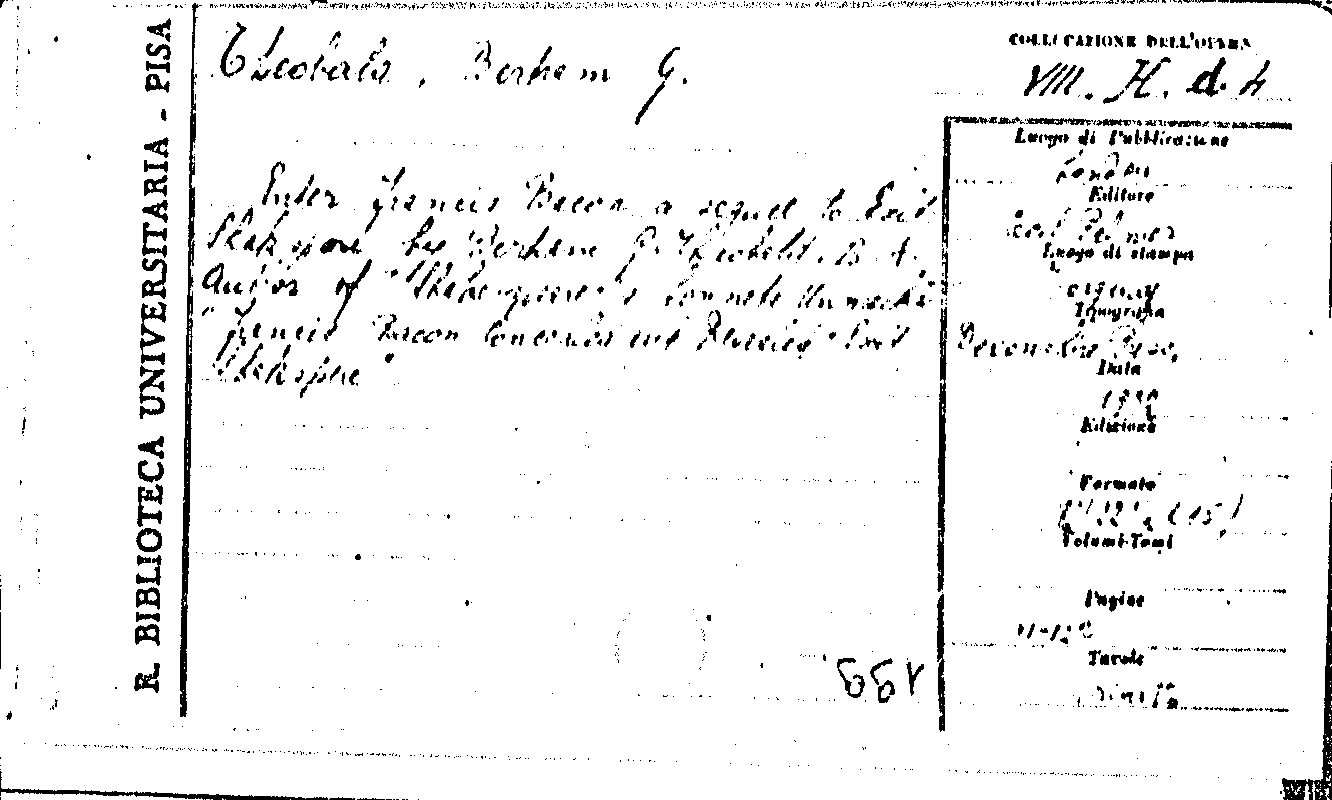 R. BIBLIOTECA UNIVERSITARIA - PISA
Theobald, Bertram G.
COLLOCAZIONE DELL'OPERA
VIII. H. d. 4
Enter Francis Bacon a sequel to Exit
Shakspere by Bertram G. Theobald. B. A.
Author of "Shakespeare's Sonnets Unmasked"
"Francis Bacon Concealed and Revealed" "Exit
Shakspere"
Luogo di Pubblicazione
London
Editore
Cecil Palmer
Luogo di stampa
Tipografia
Devonshire Press
Data
1932
Edizione
Formato
(15)
Volumi-Tomi
Pagine
Tavole